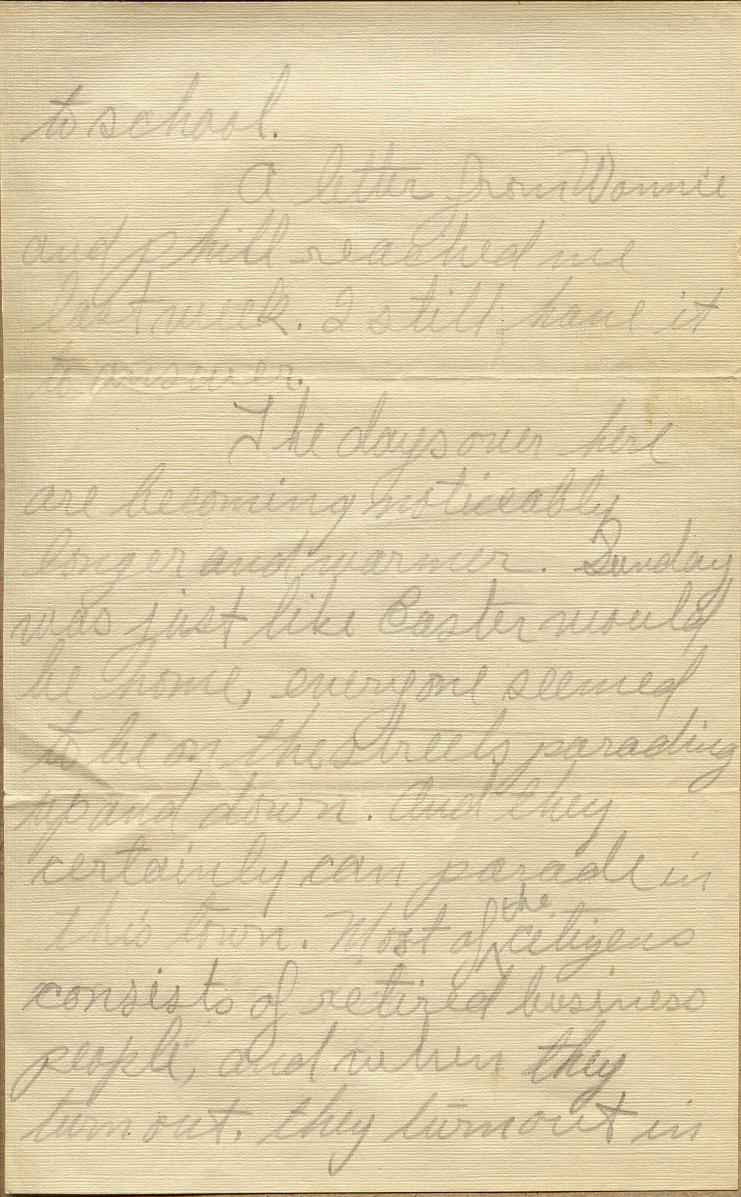 to school.
A letter from Wannie
and Phill reached me
last week. I still have it
to answer.
The days over here
are becoming noticeably
longer and warmer. Sunday
was just like Easter would
be home, everyone seemed
to be on the streets parading
up and down. And they
certainly can parade in
this town. Most of the citizens
consists of retired business
people, and when they
turn out, they turn out in